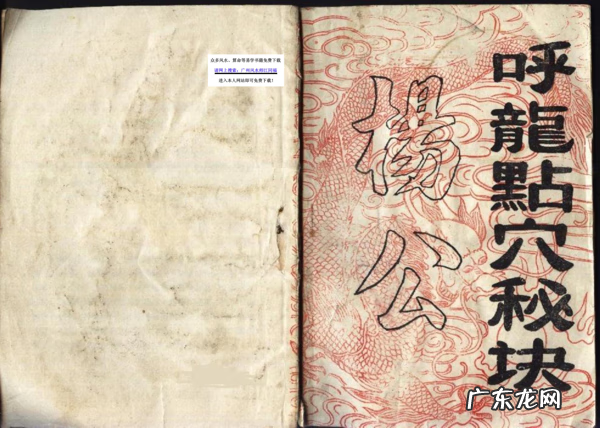 呼龍點穴秘块
楊公
众多风水、算命等易学书籍免费下载
请网上搜索:广州风水师江同福
进入本人网站即可免费下载!
广东龙网